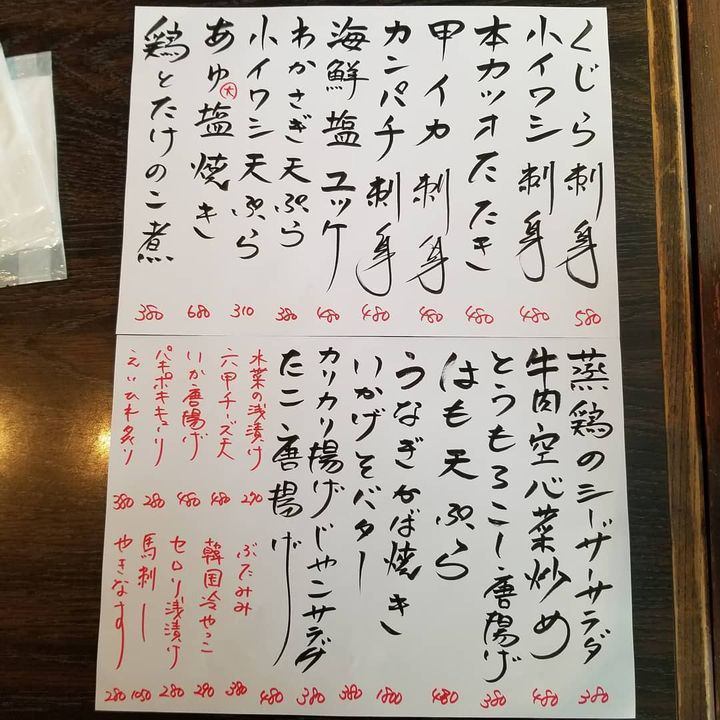 くじら刺身 580
小イワシ刺身 480
本カツオたたき 480
甲イカ刺身 480
カンパチ刺身 480
海鮮塩ユッケ 480
わかさぎ天ぷら 380
小イワシ天ぷら 310
あゆ大塩焼き 680
鶏とたけのこ煮 380
蒸鶏のシーザーサラダ 380
牛肉空心菜炒め 480
とうもろこし唐揚げ 380
はも天ぷら 480
うなぎかば焼き 1800
いかげそバター 380
カリカリ揚げじゃこサラダ 380
たこ唐揚げ 480
水菜の浅漬け 290
六甲チーズ天 480
いか唐揚げ 480
パキポキキューリ 280
えいひれ炙り 380
ぶたみみ 380
韓国冷やっこ 290
セロリ浅漬け 280
馬刺し 1050
やきなす 280